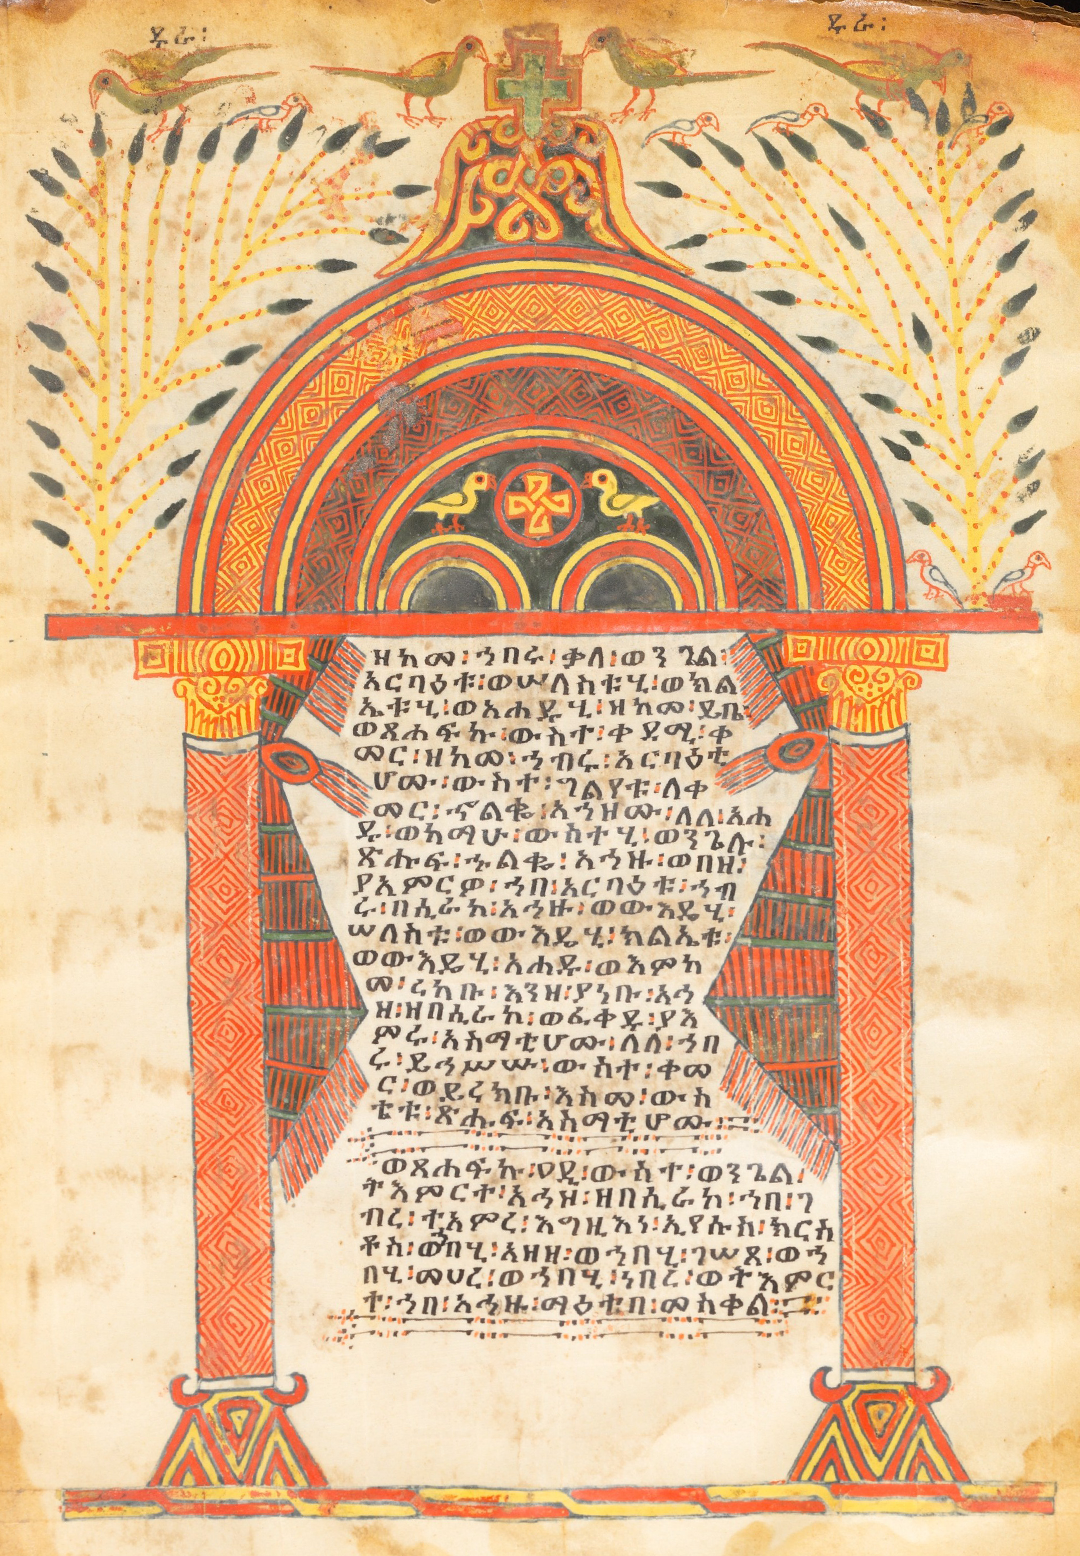 ዶራ፡ ዶራ፡
ዘከመ፡ኀበሩ፡ቃለ፡ወንጌል፡
አርባዕቱ፡ወሠለስቱሂ፡ወክል
ኤቱሂ፡ወአሐዱሂ፡ዘከመ፡ይቤ
ወጸሐፍኩ፡ውስተ፡ቀዳሚ፡ቀ
መር፡ዘከመ፡ኀብሩ፡አርባዕቲ
ሆሙ፡ውስተ፡ኅልየቱ፡ለቀ
መር፡ኍልቈ፡አኀዝሙ፡ለለ፡አሐ
ዱ፡ወከማሁ፡ውስተሂ፡ወንጌሉ፡
ጽሑፍ፡ኍልቈ፡አኀዙ፡ወበዘ፡
ያአምርዎ፡ኀበ፡አርባዕቱ፡ኀብ
ሩ፡በሲራከ፡አኀዙ፡ወውእዴሂ፡
ሠለስቱ፡ወውእዴሂ፡ክልኤቱ፡
ወውእዴሂ፡አሐዱ፡ወእምከ
መ፡ረከቡ፡እንዘ፡ያነቡ፡አኀ
ዘ፡ዘበሲራከ፡ወፈቀዱ፡ያእ
ምሩ፡አስማቲሆሙ፡ለለ፡ኀበ
ሩ፡ይኅሥሡ፡ውስተ፡ቀመ
ር፡ወይረክቡ፡እስመ፡ውስ
ቴቱ፡ጽሑፍ፡አስማቲሆሙ፡
ወጸሐፍኩ፡ዐዲ፡ውስተ፡ወንጌል፡
ትእምርተ፡አኀዝ፡ዘበሲራከ፡ኀበ፡ገ
ብረ፡ተአምረ፡እግዚእነ፡ኢየሱስ፡ክርስ
ቶስ፡ወኀበሂ፡አዘዘ፡ወኀበሂ፡ገሠጸ፡ወኀ
በሂ፡መሀረ፡ወኀበሂ፡ነበረ፡ወትእምር
ተ፡ኀበ፡አኀዙ፡ማዕተበ፡መስቀል፡